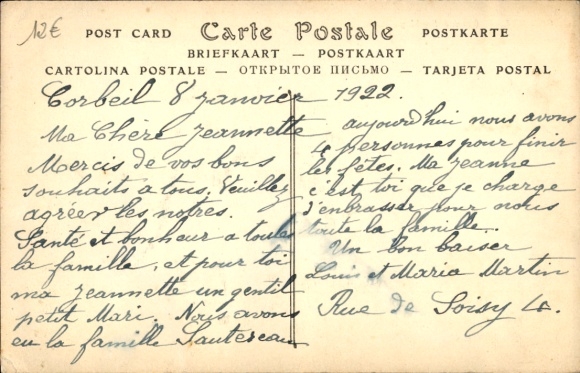 12€
POST CARD Carte Postale POSTKARTE
BRIEFKAART — POSTKAART
CARTOLINA POSTALE — ОТКРЫТОЕ ПИСЬМО — TARJETA POSTAL
Corbeil 8 janvier 1922.
Ma Chère Jeannette
Mercis de vos bons
souhaits a tous. Veuillez
agréer les notres.
Santé et bonheur a toute
la famille, et pour toi
ma Jeannette un gentil
petit Mari. Nous avons
eu la famille Sautereau
aujourd'hui nous avons
4 personnes pour finir
les fêtes. Ma Jeanne
c'est toi que je charge
d'enbrasser pour nous
toute la famille.
Un bon baiser
Louis et Maria Martin
Rue de Soisy 4.